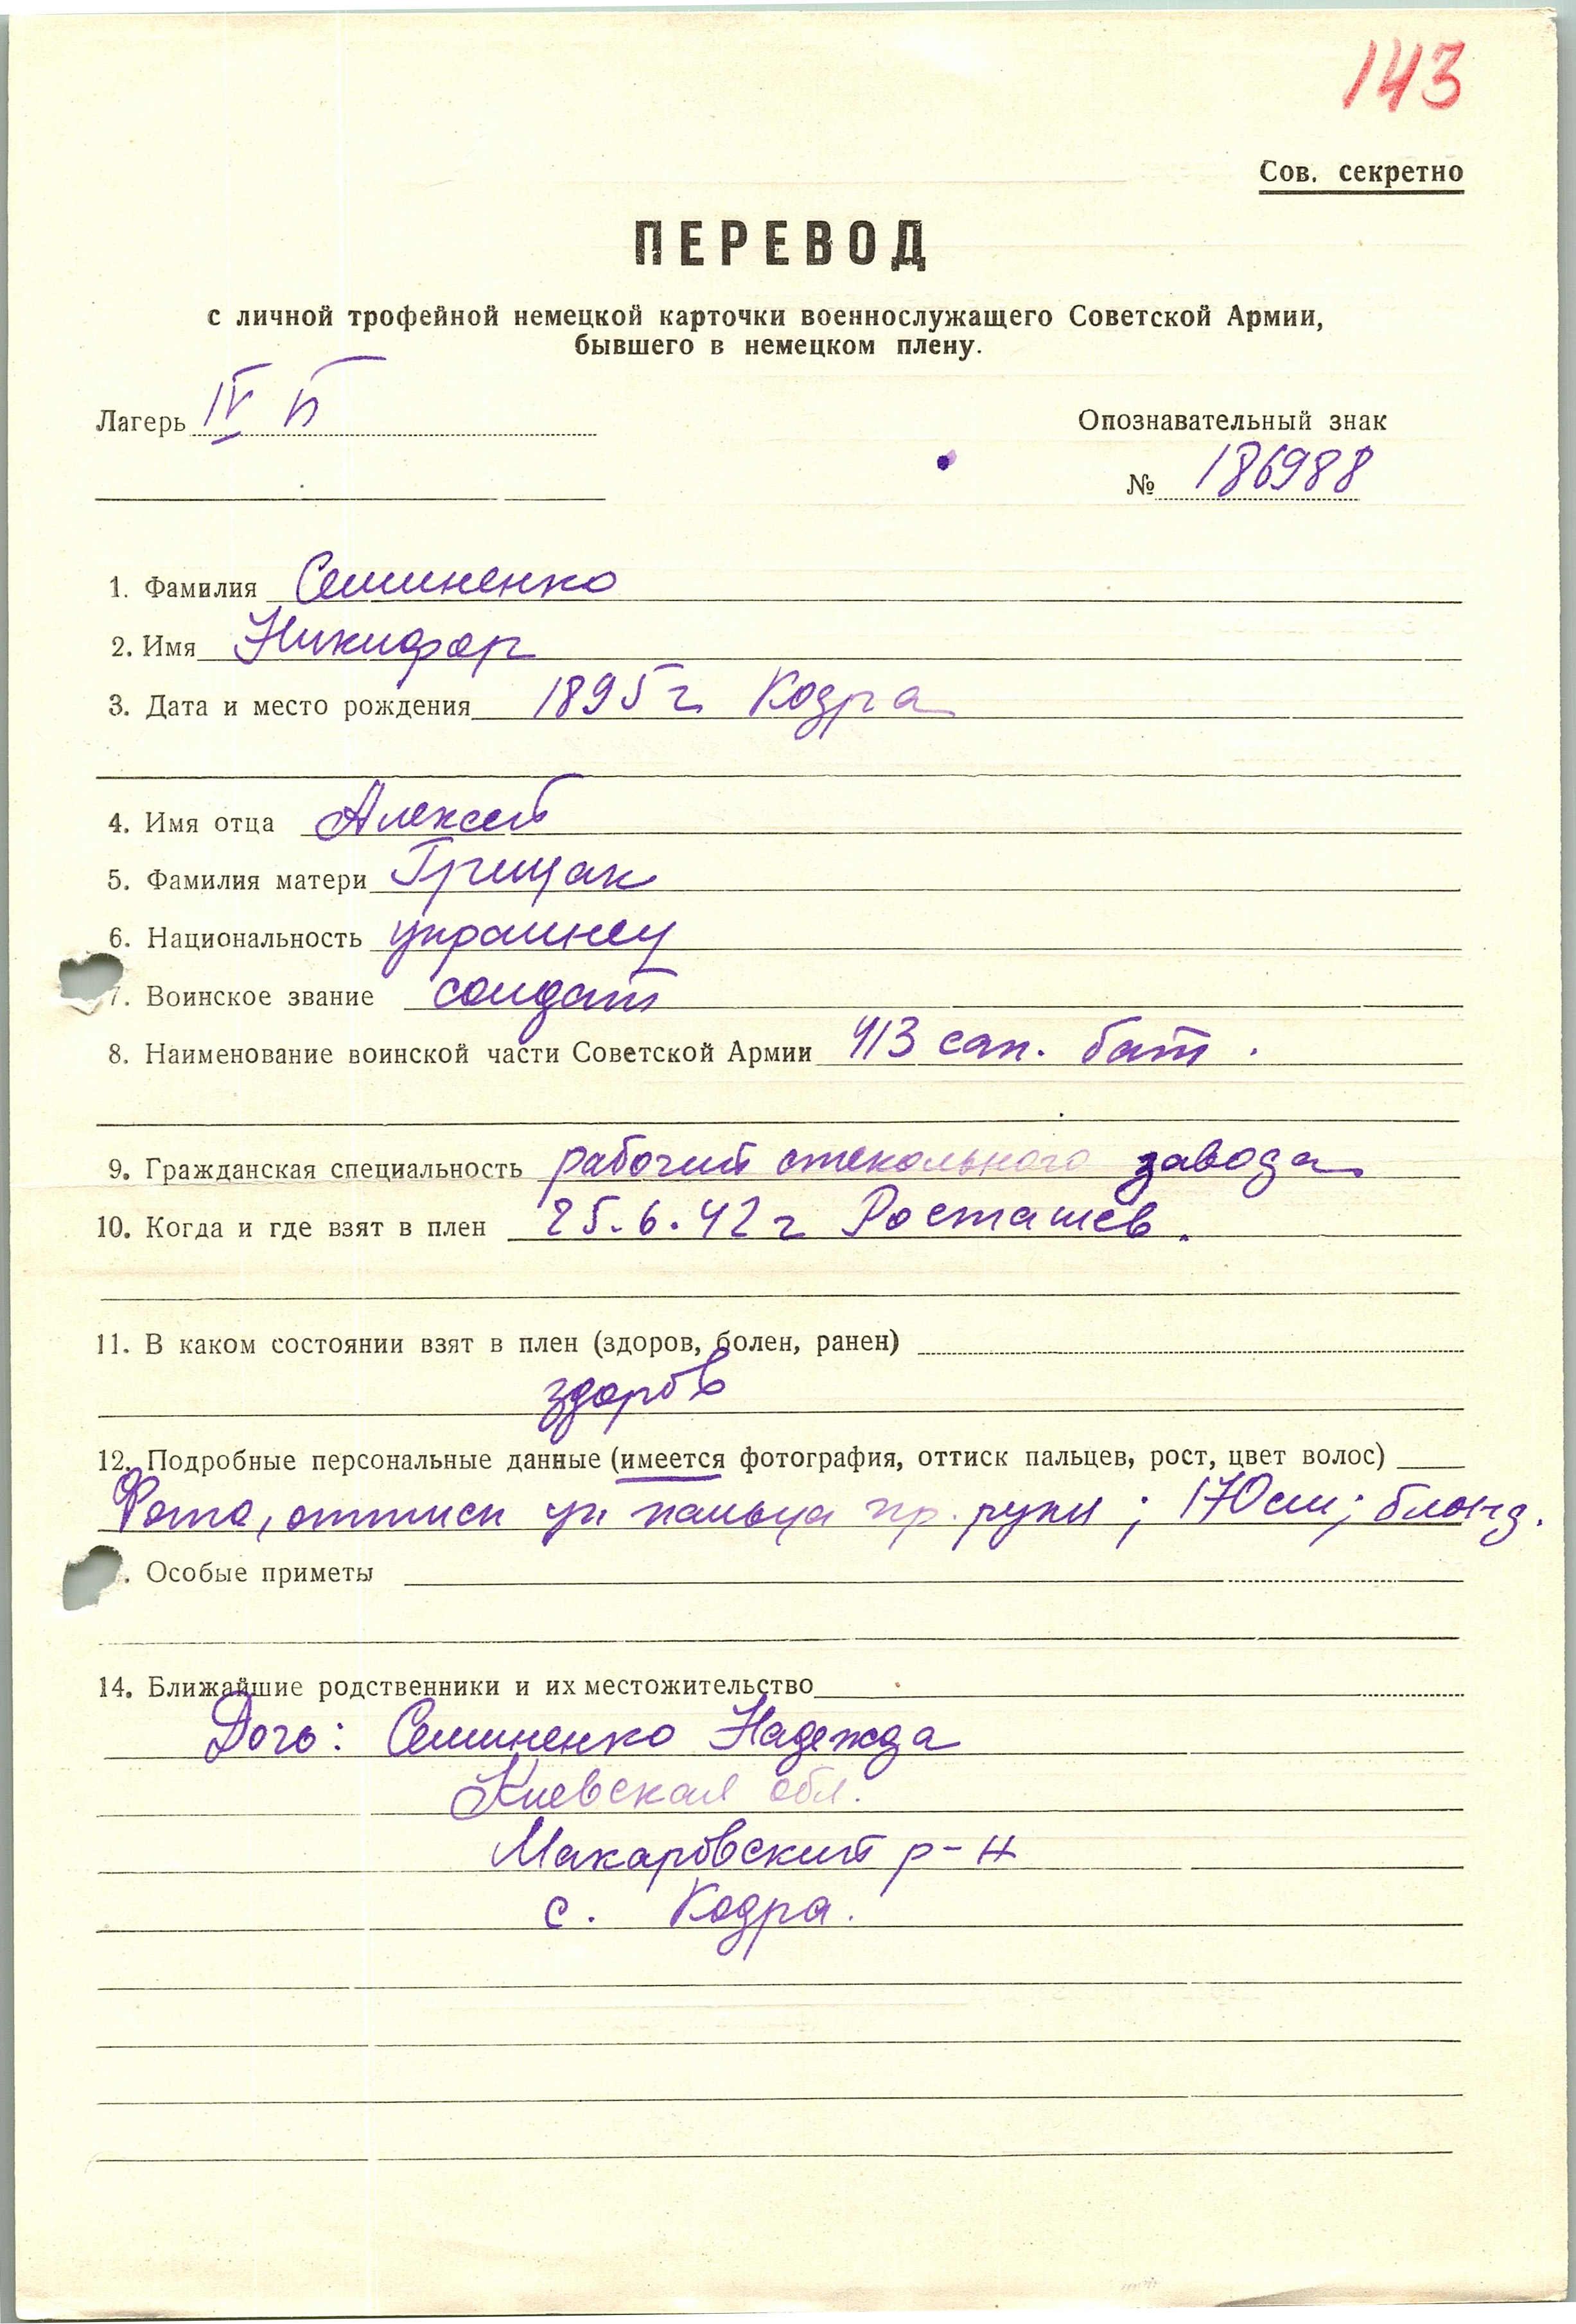 143
Сов. секретно
ПЕРЕВОД
с личной трофейной немецкой карточки военнослужащего Советской Армии,
бывшего в немецком плену.
Лагерь IV Б
Опознавательный знак
№ 186988
1. Фамилия Семиненко
2. Имя Никифор
3. Дата и место рождения 1895 г Кодра
4. Имя отца Алексей
5. Фамилия матери Грищак
6. Национальность украинец
7. Воинское звание солдат
8. Наименование воинской части Советской Армии 413 сап. бат.
9. Гражданская специальность рабочий стекольного завода
10. Когда и где взят в плен 25.6.42 г Росташев.
11. В каком состоянии взят в плен (здоров, болен, ранен)
здоров
12. Подробные персональные данные (имеется фотография, оттиск пальцев, рост, цвет волос)
Фото, оттиск ук пальца пр. руки; 170 см; блонд.
. Особые приметы
14. Ближайшие родственники и их местожительство
Дочь: Семиненко Надежда
Киевская обл.
Макаровский р-н
с. Кодра.